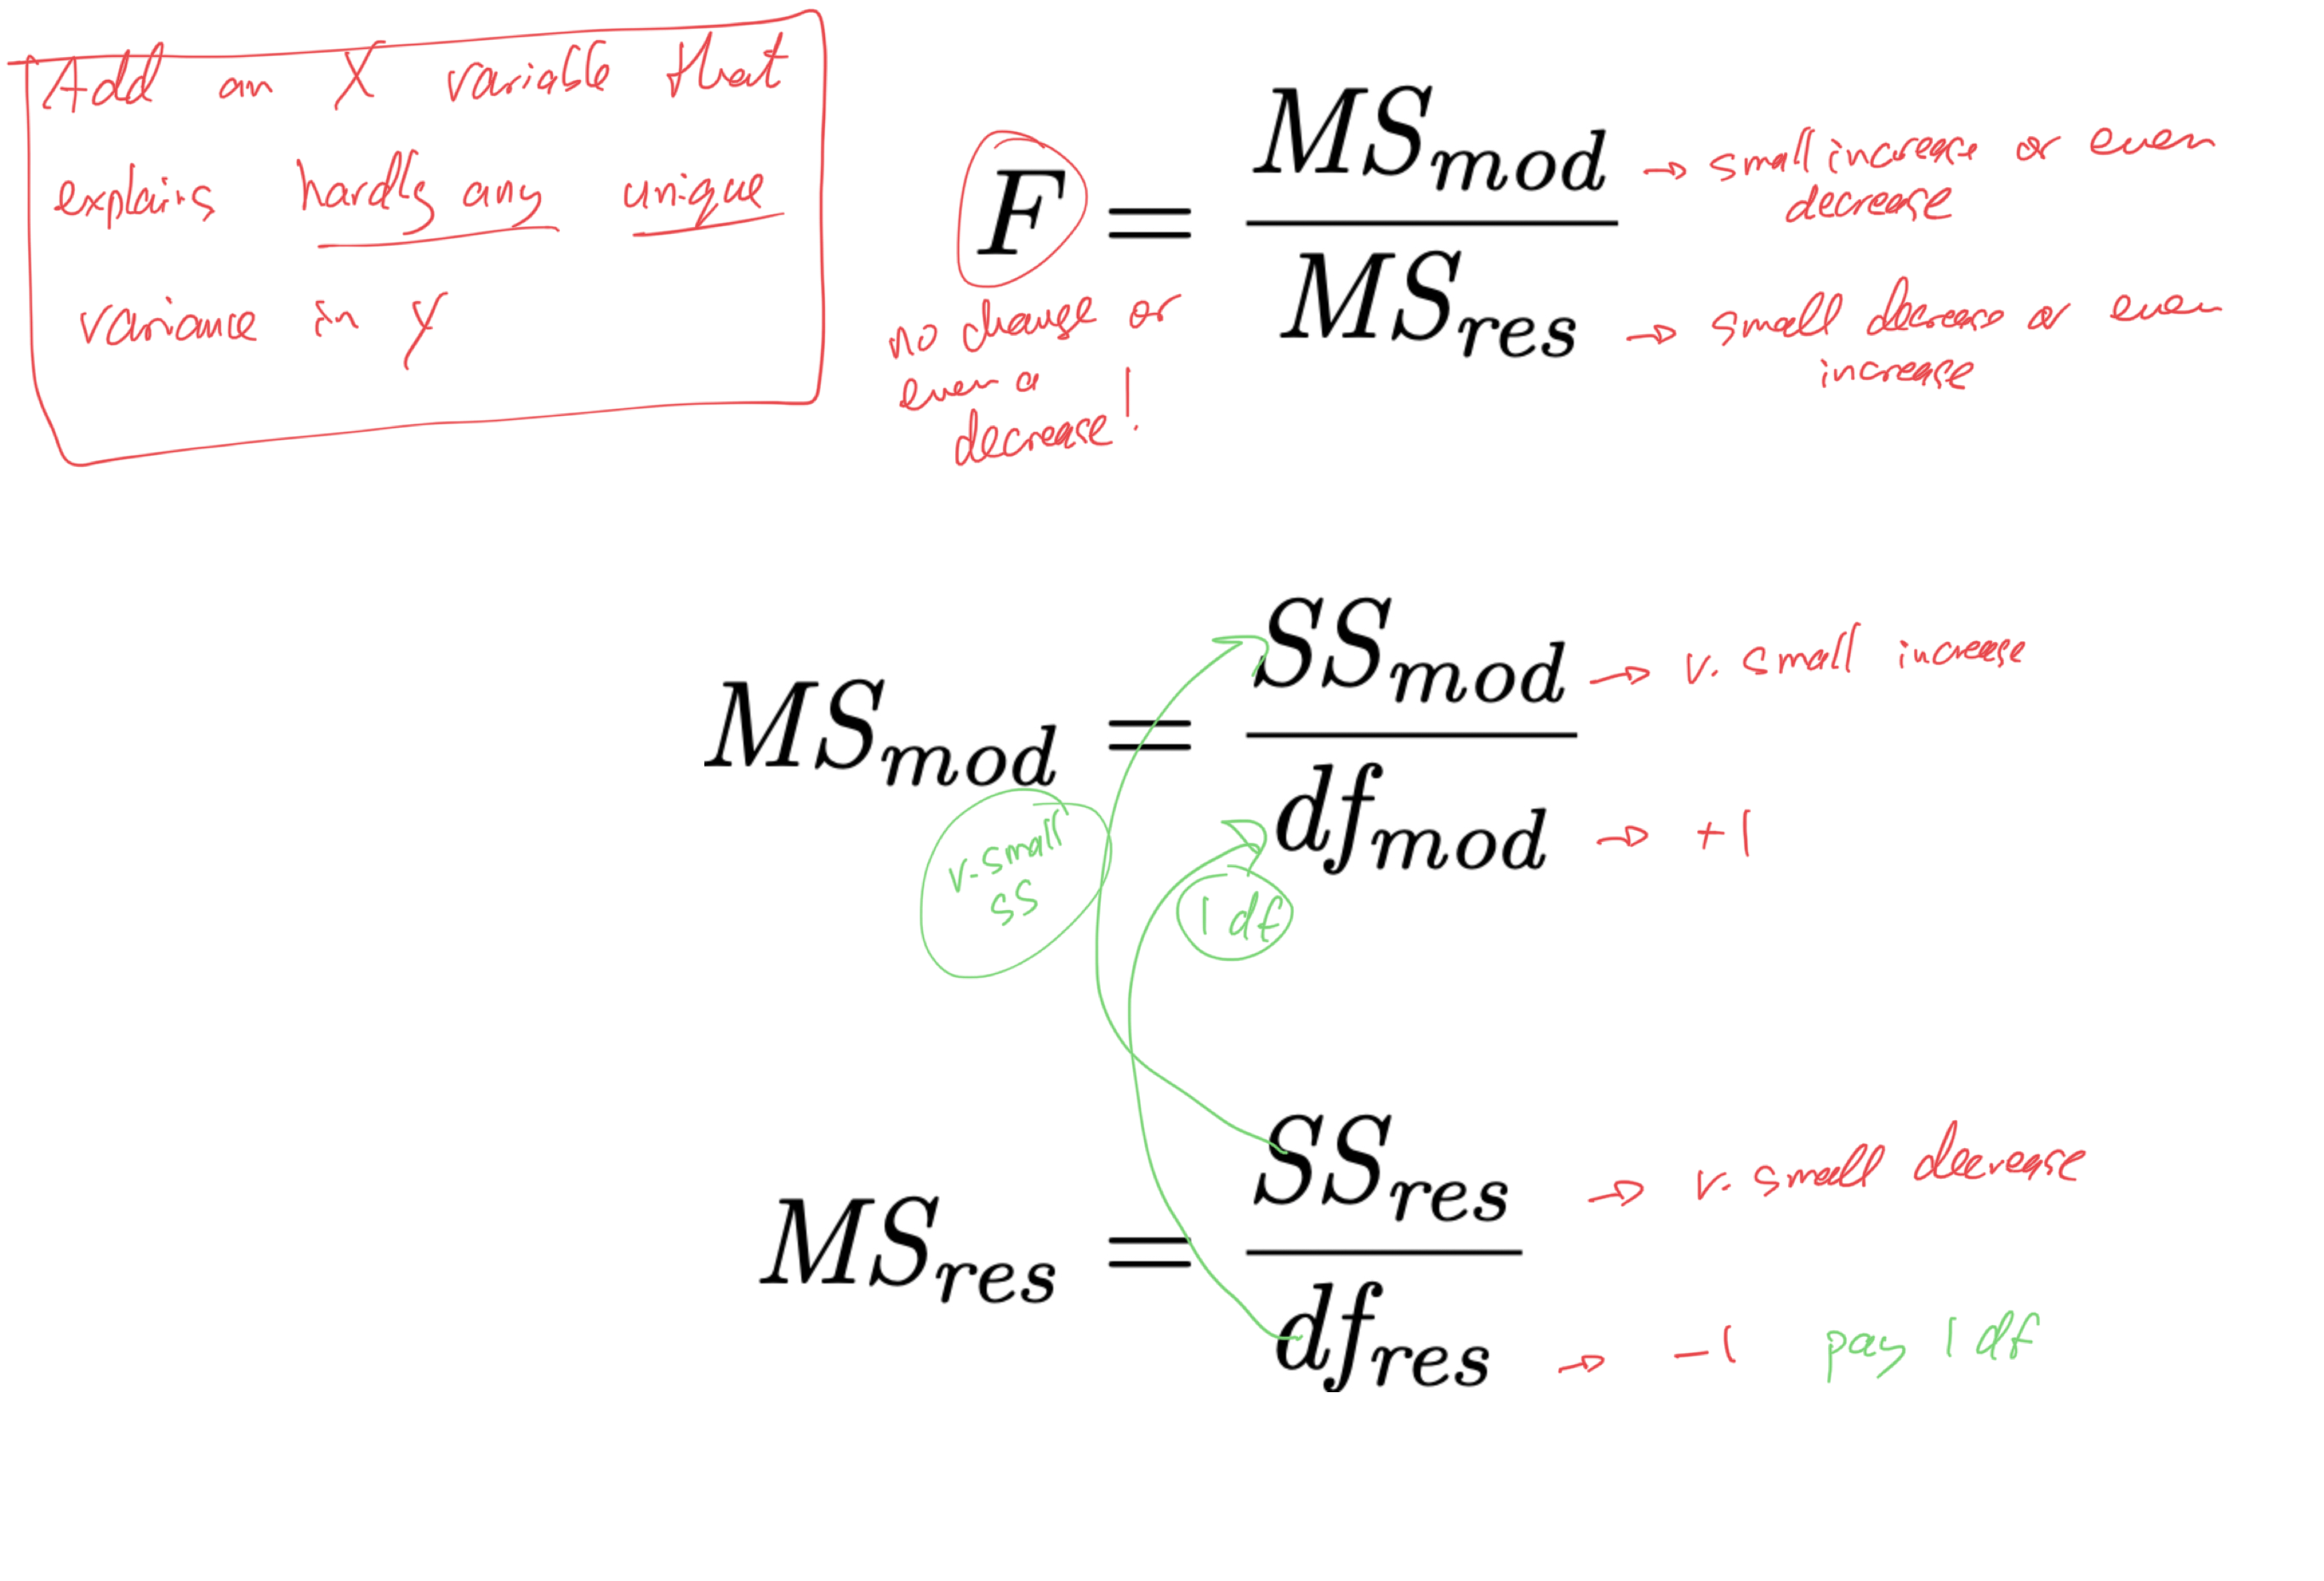 Add an X variable that
explains hardly any unique
variance in Y
F = MS_mod / MS_res
→ small increase or even
decrease
→ small decrease or even
increase
no change or
even a
decrease!
MS_mod = SS_mod / df_mod
→ v. small increase
→ +1
v. small
SS
1 df
MS_res = SS_res / df_res
→ v. small decrease
→ -1 pay 1 df